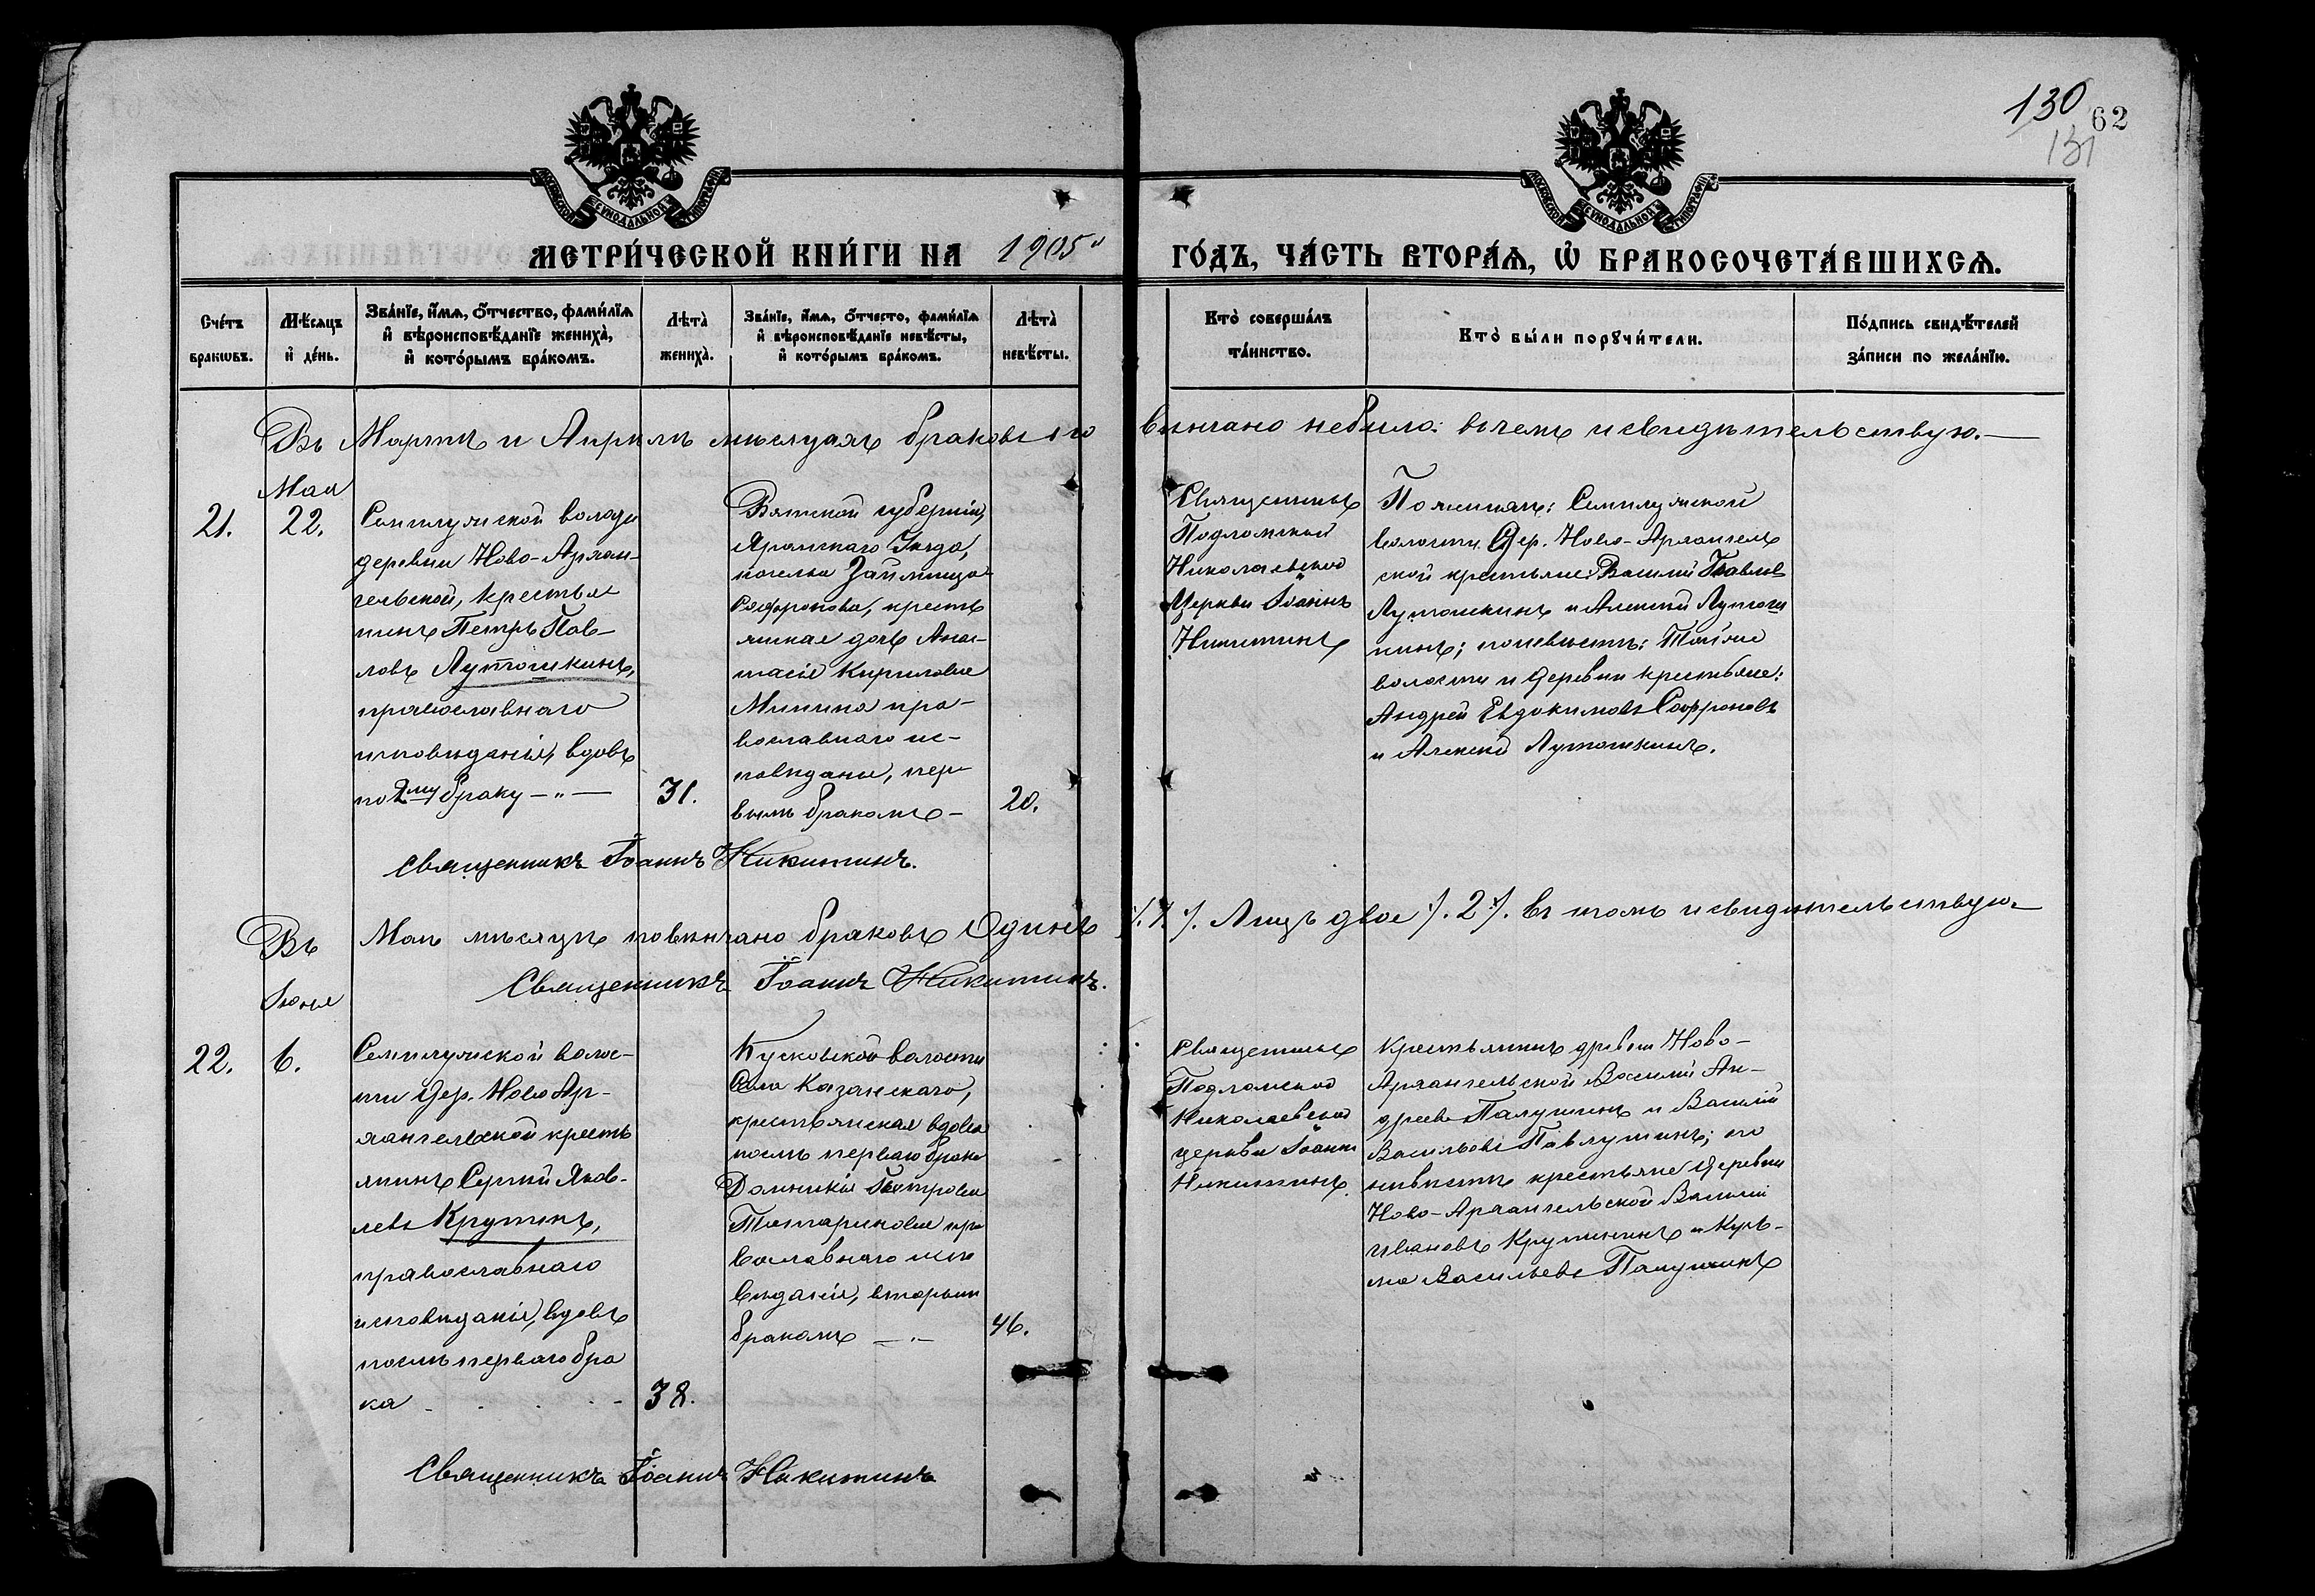 130
62
131
МОСКОВСКОЙ СѴНОДАЛЬНОЙ ТИПОГРАФІИ
МОСКОВСКОЙ СѴНОДАЛЬНОЙ ТИПОГРАФІИ
МЕТРИ́ЧЕСКОЙ КНИ́ГИ НА 1905 ГО́ДЪ, ЧА́СТЬ ВТОРА́Ѧ, Ѡ БРАКОСОЧЕТА́ВШИХСѦ.
Сче́тъ бракѡвъ.
Мѣ́сяцъ и де́нь.
Зва́нїе, и́мѧ, ѻ́тчество, фами́лїѧ
и вѣроисповѣ́данїе жениха̀,
и кото́рымъ бра́комъ.
Лѣта̀ жениха̀.
Зва́нїе, и́мѧ, ѻ́тчесто, фами́лїѧ
и вѣроисповѣ́данїе невѣ́сты,
и кото́рымъ бра́комъ.
Лѣта̀ невѣ́сты.
Кто̀ соверша́лъ
та́инство.
Кто̀ бы́ли порꙋчи́тели.
По́дпись свидѣ́телей
за́писи по жела́нїю.
Въ Мартѣ и Апрѣлѣ мѣсяцахъ браковъ повѣнчано небыло: въ чемъ и свидѣтельствую.—
Мая
21.
22.
Семилужской волости
деревни Ново-Архан-
гельской, крестья
нинъ Петръ Пав-
ловъ Лутошкинъ,
православнаго
исповѣданія, вдовъ
по 2му браку — " —
31.
Вятской губерніи,
Яранскаго Уѣзда,
починка Займища
Софронова, кресть
янская дочь Анас-
тасія Кирилова
Минина пра-
вославнаго ис-
повѣданія, пер
вымъ бракомъ —
20.
Священникъ
Подломской
Николаевской
Церкви Іоаннъ
Никитинъ
По женихѣ: Семилужской
волости Дер. Ново-Архангель
ской крестьяне: Василій Павловъ
Лутошкинъ и Алексѣй Лутош
кинъ; по невѣстѣ: Той же
волости и деревни крестьяне:
Андрей Евдокимовъ Софроновъ
и Алексѣй Лутошкинъ.
Священникъ Іоаннъ Никитинъ.
Въ Маѣ мѣсяцѣ повѣнчано браковъ Одинъ ./.1./. Лицъ двое ./.2./. въ томъ и свидѣтельствую
Священникъ Іоаннъ Никитинъ.
Іюня
22.
6.
Семилужской волос-
ти Дер. Ново Ар-
хангельской кресть
янинъ Сергѣй Яков-
левъ Крутинъ,
православнаго
исповѣданія, вдовъ
послѣ перваго бра
ка
38.
Кусковской волости
Села Казанскаго,
крестьянская вдова
послѣ перваго брака
Домникія Петрова
Татаринова пра
вославнаго испо
вѣданія, вторымъ
бракомъ — . —
46.
Священникъ
Подломской
Николаевской
церкви Іоаннъ
Никитинъ.
Крестьянинъ древни Ново-
Архангельской Василій Ан-
дреевъ Палушинъ и Василій
Васильевъ Павлушинъ; по
невѣстѣ крестьяне деревни
Ново-Архангельской Василій
Ивановъ и Кузь-
ма Васильевъ
Священникъ Іоаннъ Никитинъ